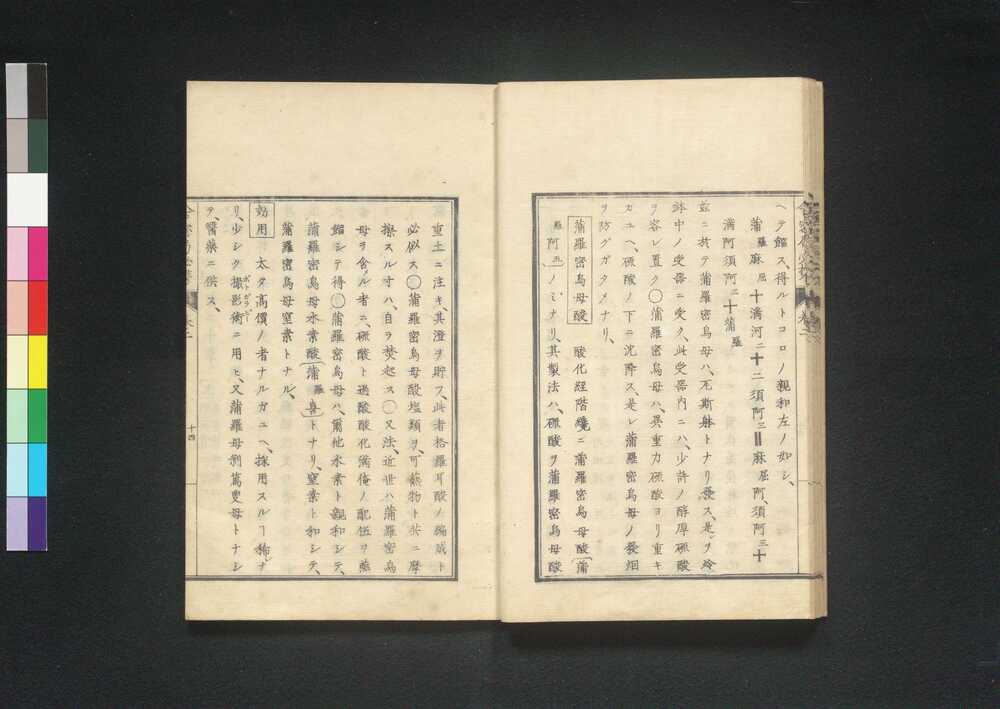 ヘテ餾ス、得ルトコロノ親和左ノ如シ、
蒲羅麻屈十満河二十二須阿三‖麻屈阿、須阿三十
満阿須阿二十蒲羅
玆ニ於テ蒲羅密烏母ハ、瓦斯狀トナリ發ス、是ヲ冷
鉢中ノ受器ニ受ク、此受器内ニハ、少許ノ醇厚硫酸
ヲ容レ置ク〇蒲羅密烏母ハ、異重力硫酸ヨリ重キ
カユヘ、硫酸ノ下ニ沈降ス、是レ蒲羅密烏母ノ發烟
ヲ防グガタメナリ、
蒲羅密烏母酸 酸化経階纔ニ蒲羅密烏母酸蒲
羅阿五ノミナリ、其製法ハ、硫酸ヲ蒲羅密烏母酸
重土ニ注キ其澄ヲ貯フ、此者格羅耳酸ノ編成ト
必似ス〇蒲羅密烏母酸塩類ヲ、可燃物ト共ニ摩
擦スルオハ、自ラ焚起ス〇又法、近世ハ蒲羅密烏
母ヲ含ル者ニ、硫酸ト過酸酸化満俺ノ配伍ヲ熱
餾シテ得〇蒲羅密烏母ハ、爾他水素ト親和シテ、
蒲羅密烏母水素酸蒲羅喜トナリ、窒素ト和シテ、
蒲羅密烏母窒素トナル、
効用 太タ高價ノ者ナルガユヘ、採用スルヿ稀ナ
リ、少シク撮影術ニ用ヒ、又蒲羅母剥篤叟母トナシ
テ、醫藥ニ供ス、
十四